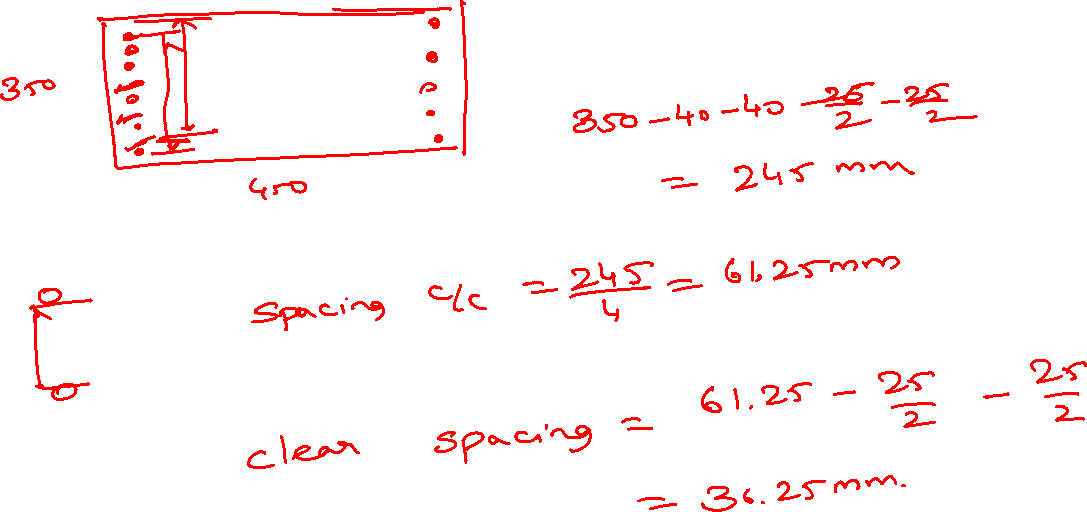 350
450
350 - 40 - 40 - 25/2 - 25/2
= 245 mm
spacing c/c = 245/4 = 61.25mm
clear spacing = 61.25 - 25/2 - 25/2
= 36.25mm.